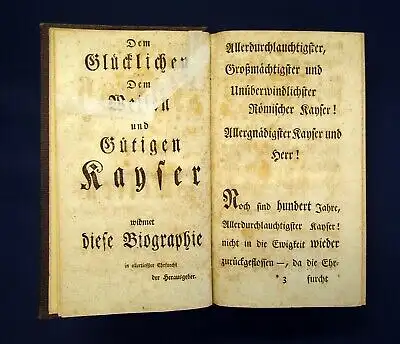 Dem
Glücklichen
Dem
Weisen
und
Gütigen
Kayser
widmet
diese Biographie
in allertiefster Ehrfurcht
der Herausgeber.
Allerdurchlauchtigster,
Großmächtigster und
Unüberwindlichster
Römischer Kayser!
Allergnädigster Kayser und
Herr!
Noch sind hundert Jahre,
Allerdurchlauchtigster Kayser!
nicht in die Ewigkeit wieder
zurückgeflossen —, da die Ehr-
3 furcht